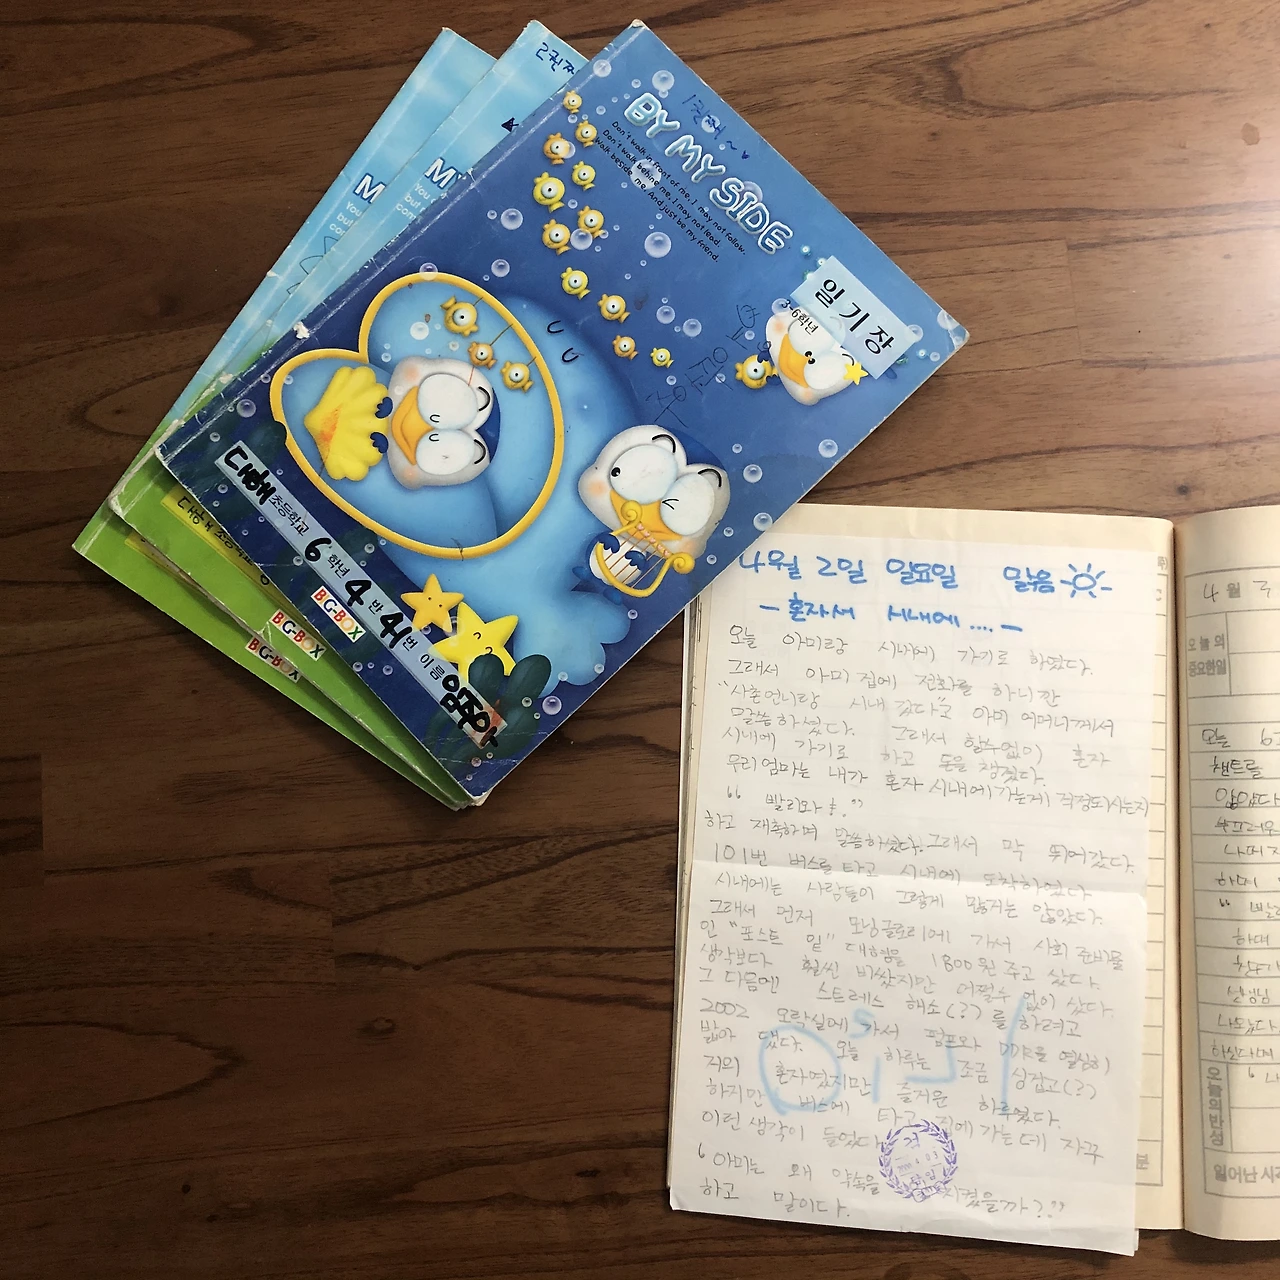 2권째
1권째~♥
BY MY SIDE
Don't walk in front of me, I may not follow.
Don't walk behind me, I may not lead.
Walk beside me. And just be my friend.
일기장
3-6학년
대해 초등학교 6 학년 4 반 41 번 이름 임주아
BG-BOX
BG-BOX
BG-BOX
4월 2일 일요일 맑음
- 혼자서 시내에.... -
오늘 아미랑 시내에 가기로 하였다.
그래서 아미 집에 전화를 하니깐
"사촌언니랑 시내 갔다"고 아미 어머니께서
말씀하셨다. 그래서 할수없이 혼자
시내에 가기로 하고 돈을 챙겼다.
우리엄마는 내가 혼자 시내에 가는게 걱정되시는지
" 빨리와!."
하고 재촉하며 말씀하셨다. 그래서 막 뛰어갔다.
101번 버스를 타고 시내에 도착하였다
시내에는 사람들이 그렇게 많거는 않았다.
그래서 먼저 모닝글로리에 가서 사회 준비물
인 "포스트 잍" 대형을 1800원 주고 샀다.
생각보다 훨씬 비쌌지만 어쩔수 없이 샀다.
그 다음엔 스트레스 해소(?)를 하려고
2002 오락실에 가서 펌프와 DDR을 열심히
밟아 댔다. 오늘 하루는 조금 싱겁고(?)
저의 혼자였지만 즐거운 하루였다.
하지만 버스에 타고 집에 가는데 자꾸
이런 생각이 들었다
' 아미는 왜 약속을 시켰을까?'"
하고 말이다.
검
2000.4.03
4 월
오늘의
중요한일
오늘
챈트를
않았다
부끄러운
하며
" 빨
하며
선생님
나왔다
하신다며
오늘의반성
분
일어난 시각